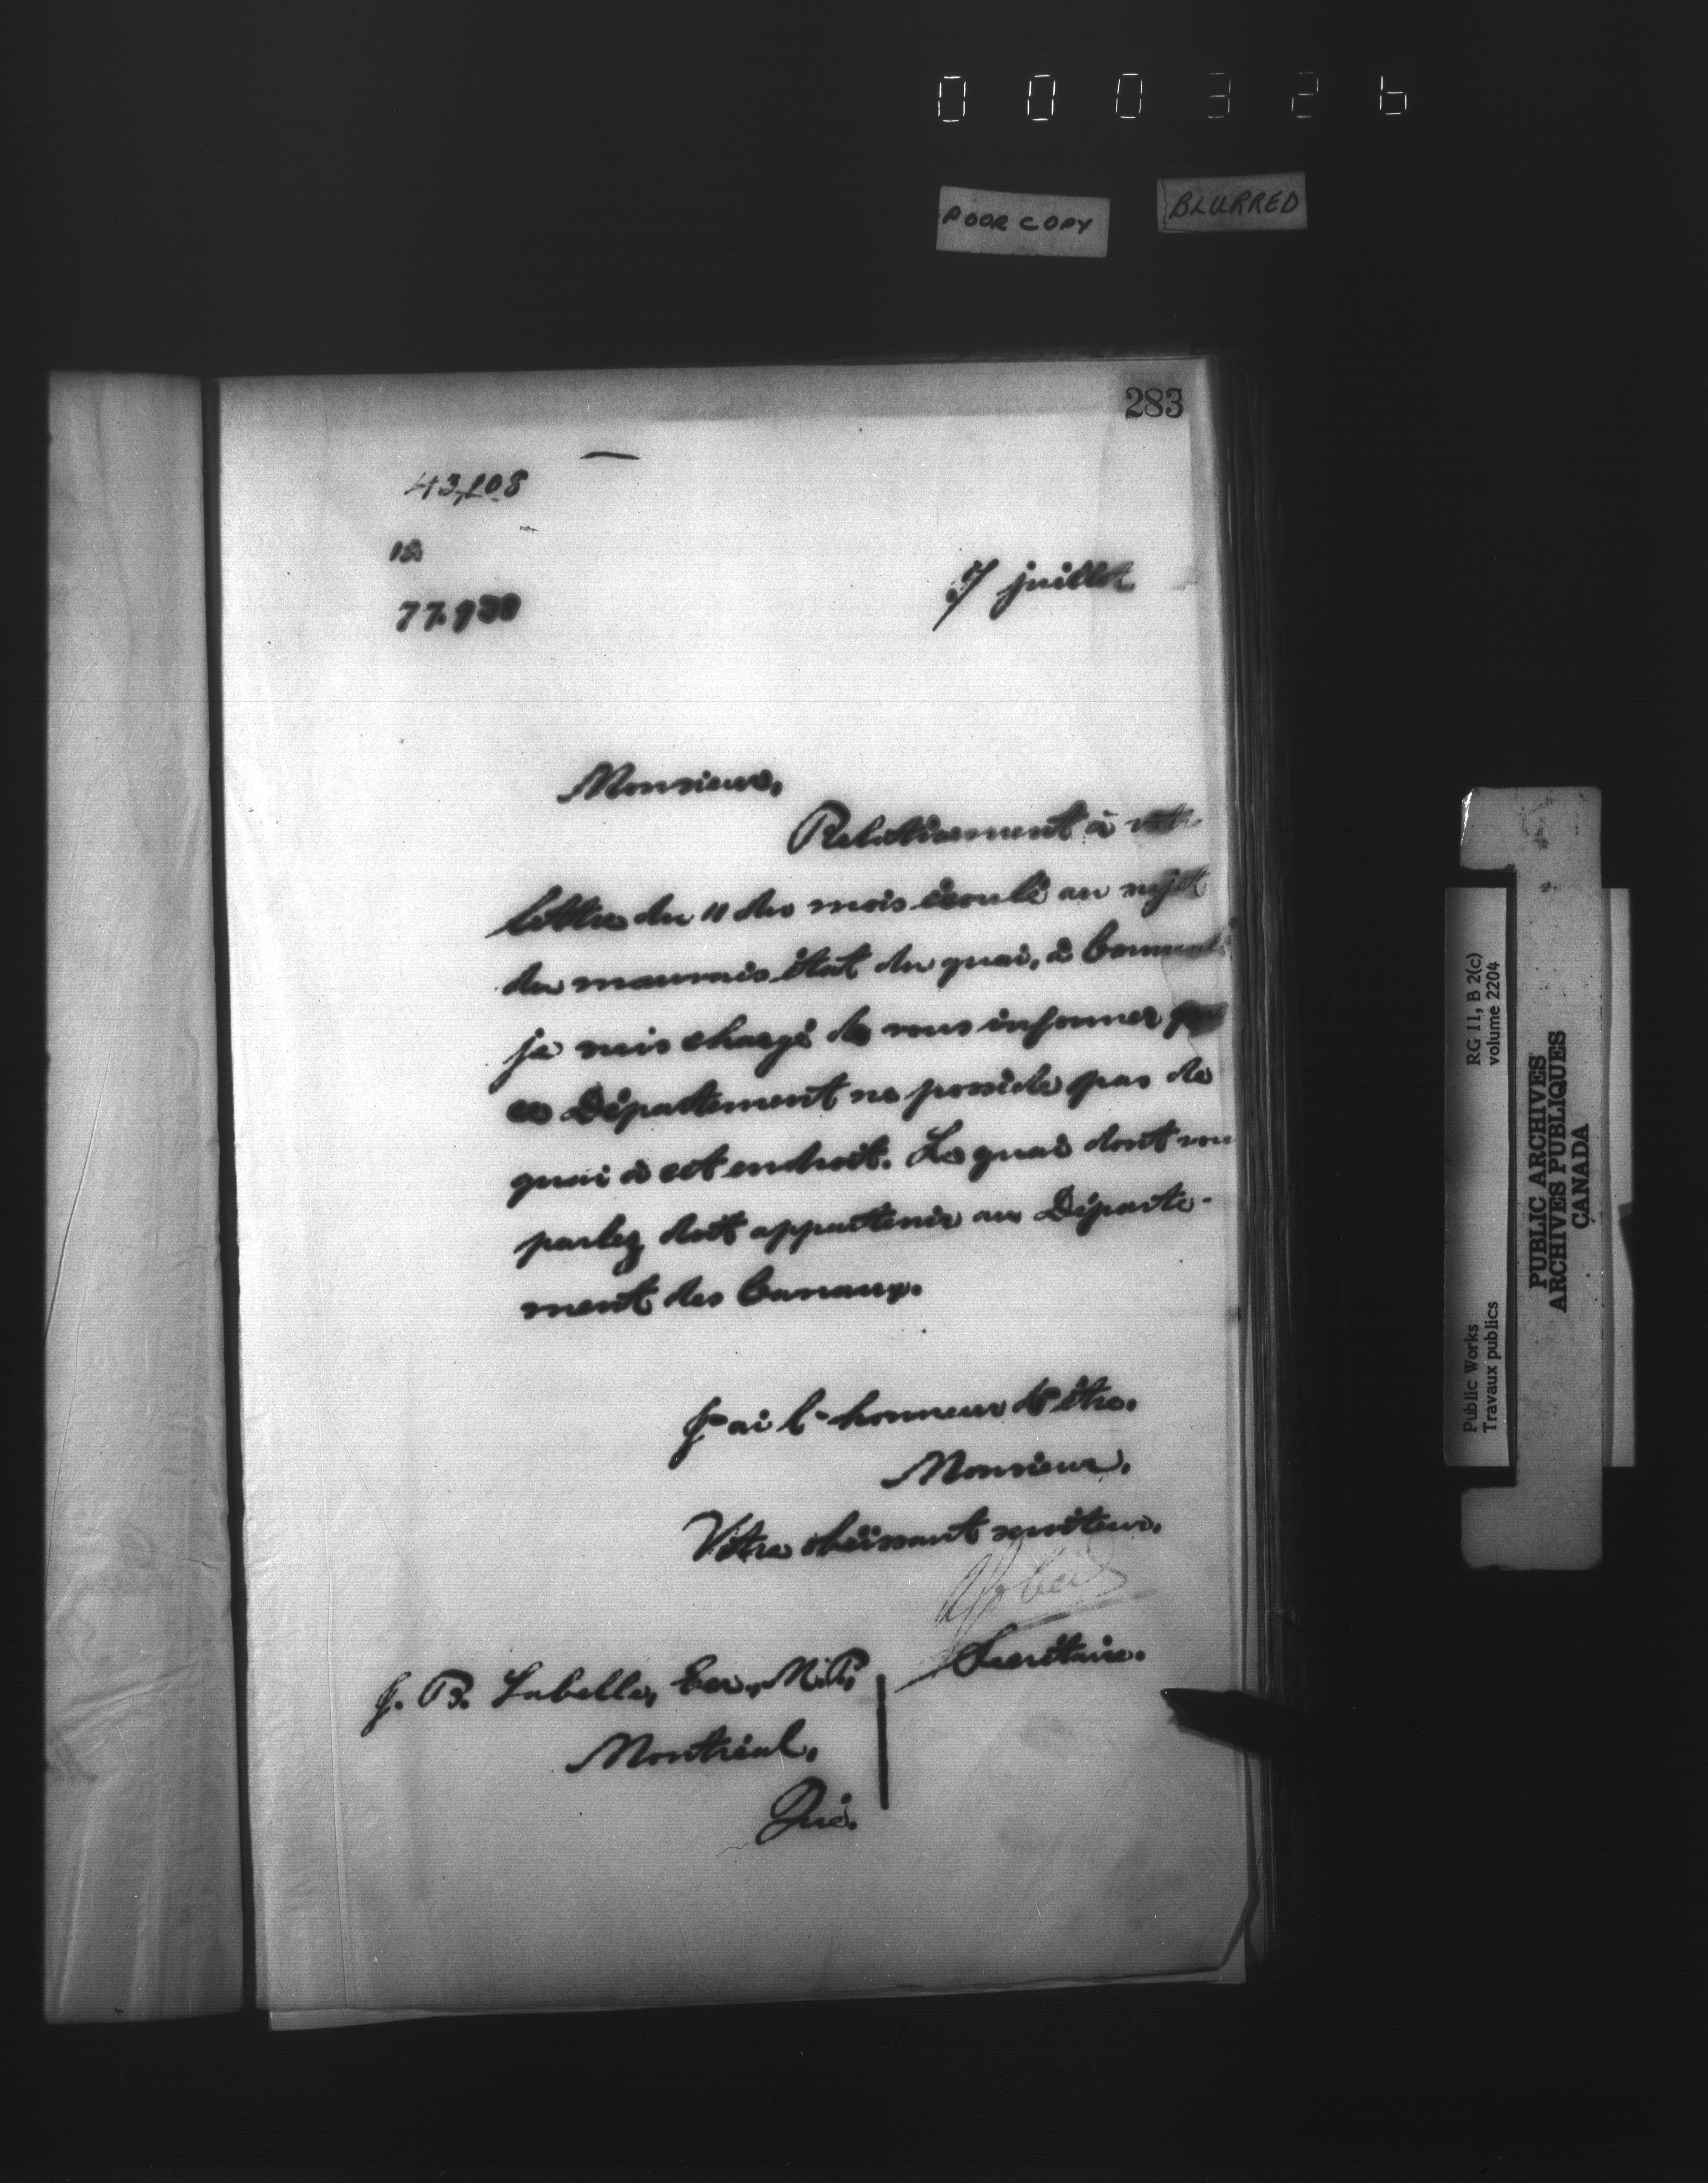 000326
POOR COPY
BLURRED
283
43,108
7 juillet
Monsieur,
Relativement à votre
lettre du 11 du mois écoulé au sujet
du mauvais état du quai, à
je suis chargé de vous informer que
ce Département ne possède pas de
quai à cet endroit. Le quai dont vous
parlez doit appartenir au Départe-
ment des Canaux.
J'ai l'honneur d'être,
Monsieur,
Votre obéissant serviteur,
Secrétaire.
J. B. Labelle, Ecr., M.P.,
Montréal,
Qué.
Public Works
Travaux publics
RG 11, B 2(c)
volume 2204
PUBLIC ARCHIVES
ARCHIVES PUBLIQUES
CANADA